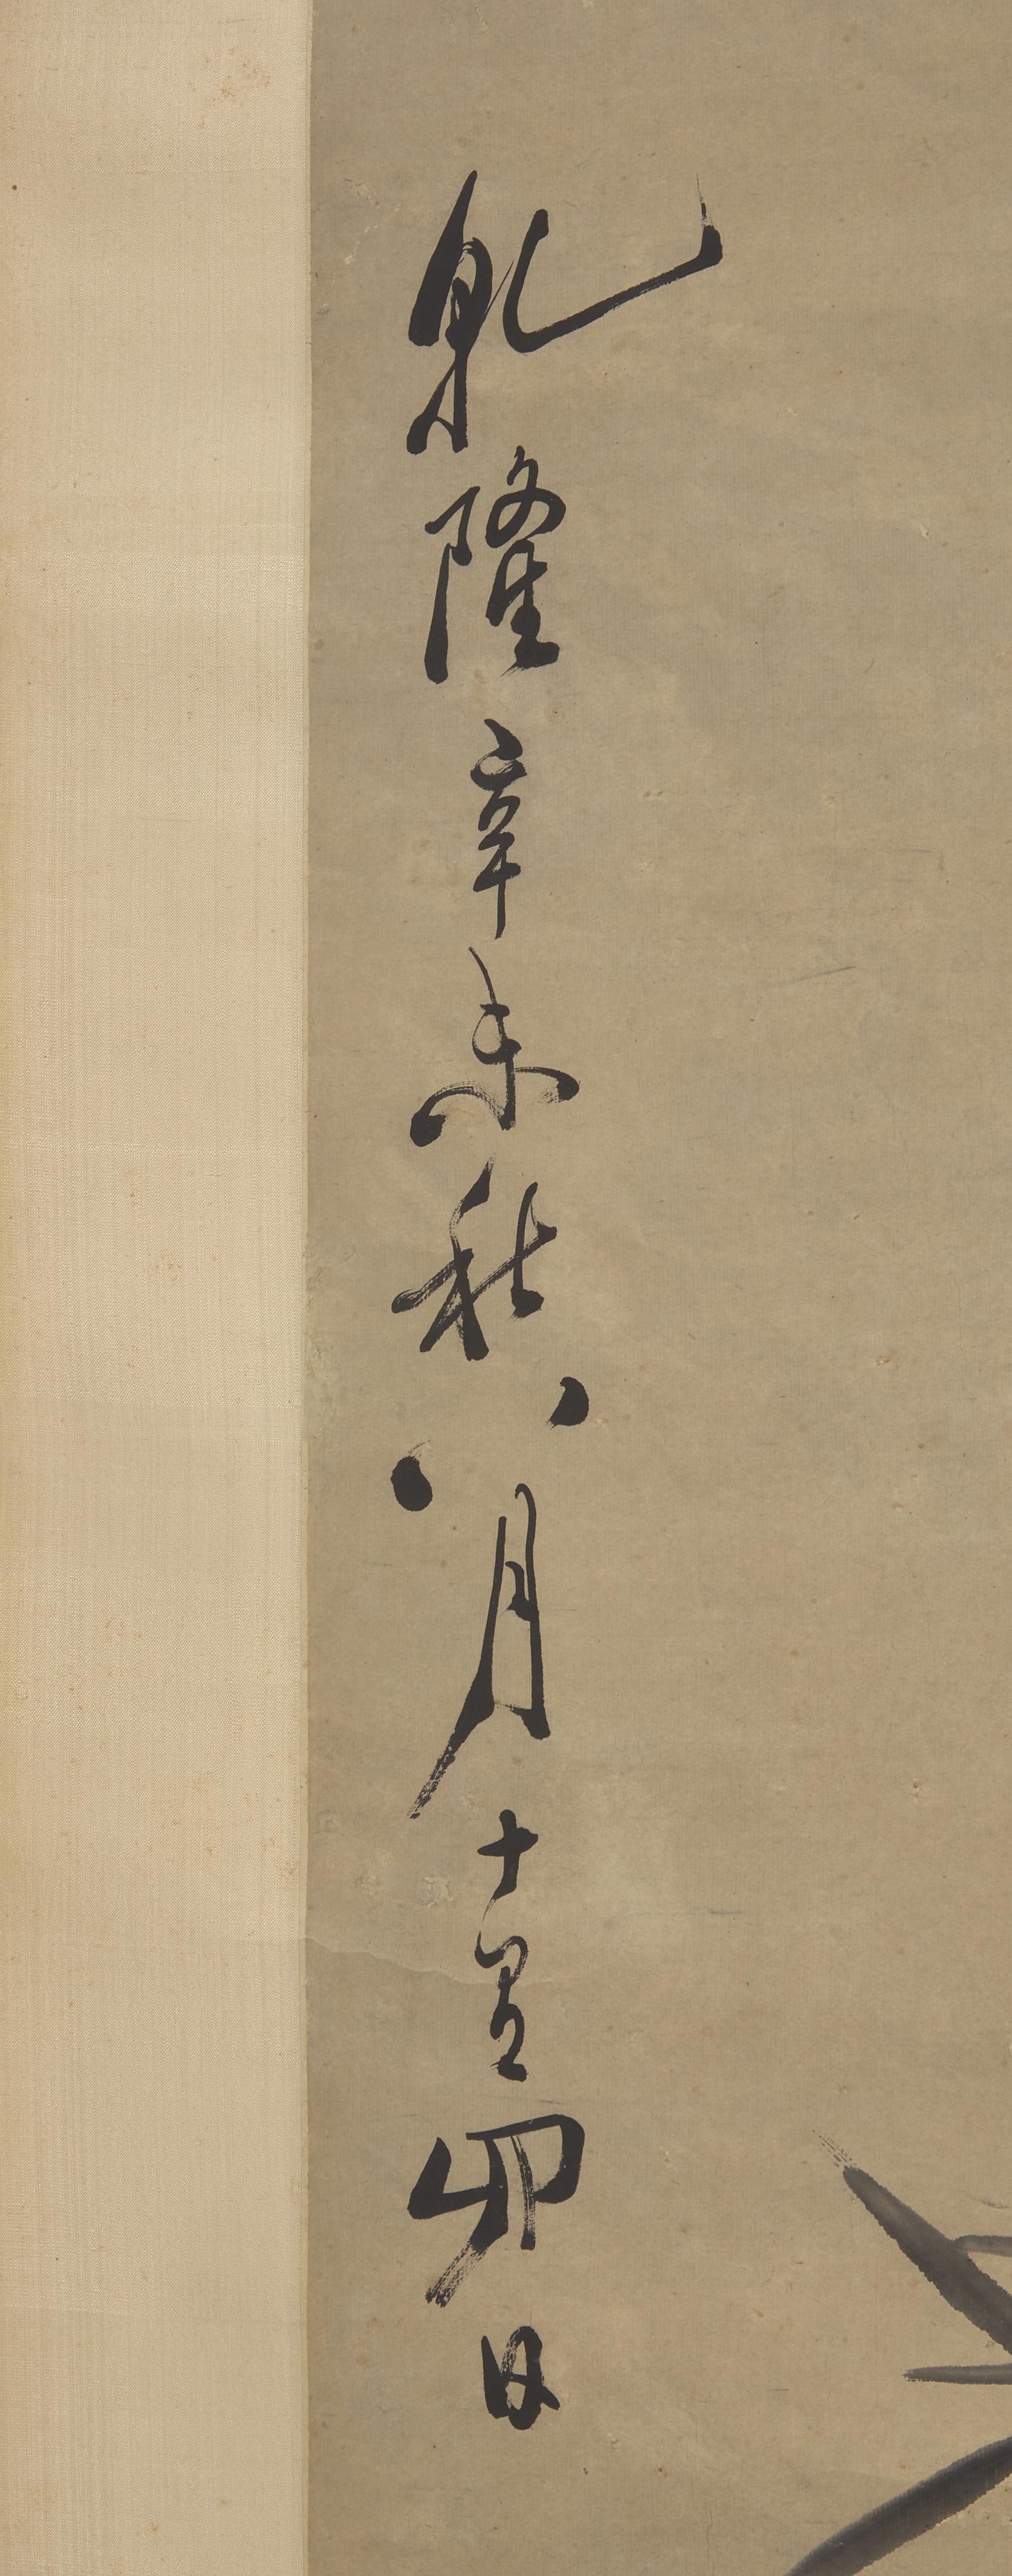 乾隆辛未秋八月十卯日